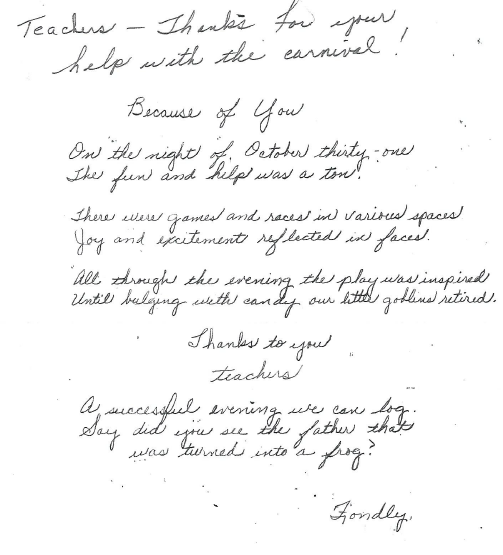 Teachers — Thanks for your
help with the carnival!
Because of You
On the night of October thirty-one
The fun and help was a ton.
There were games and races in various spaces
Joy and excitement reflected in faces.
All through the evening the play was inspired
Until bulging with candy our little goblins retired.
Thanks to you
teachers
A successful evening we can log.
Say did you see the father that
was turned into a frog?
Fondly,